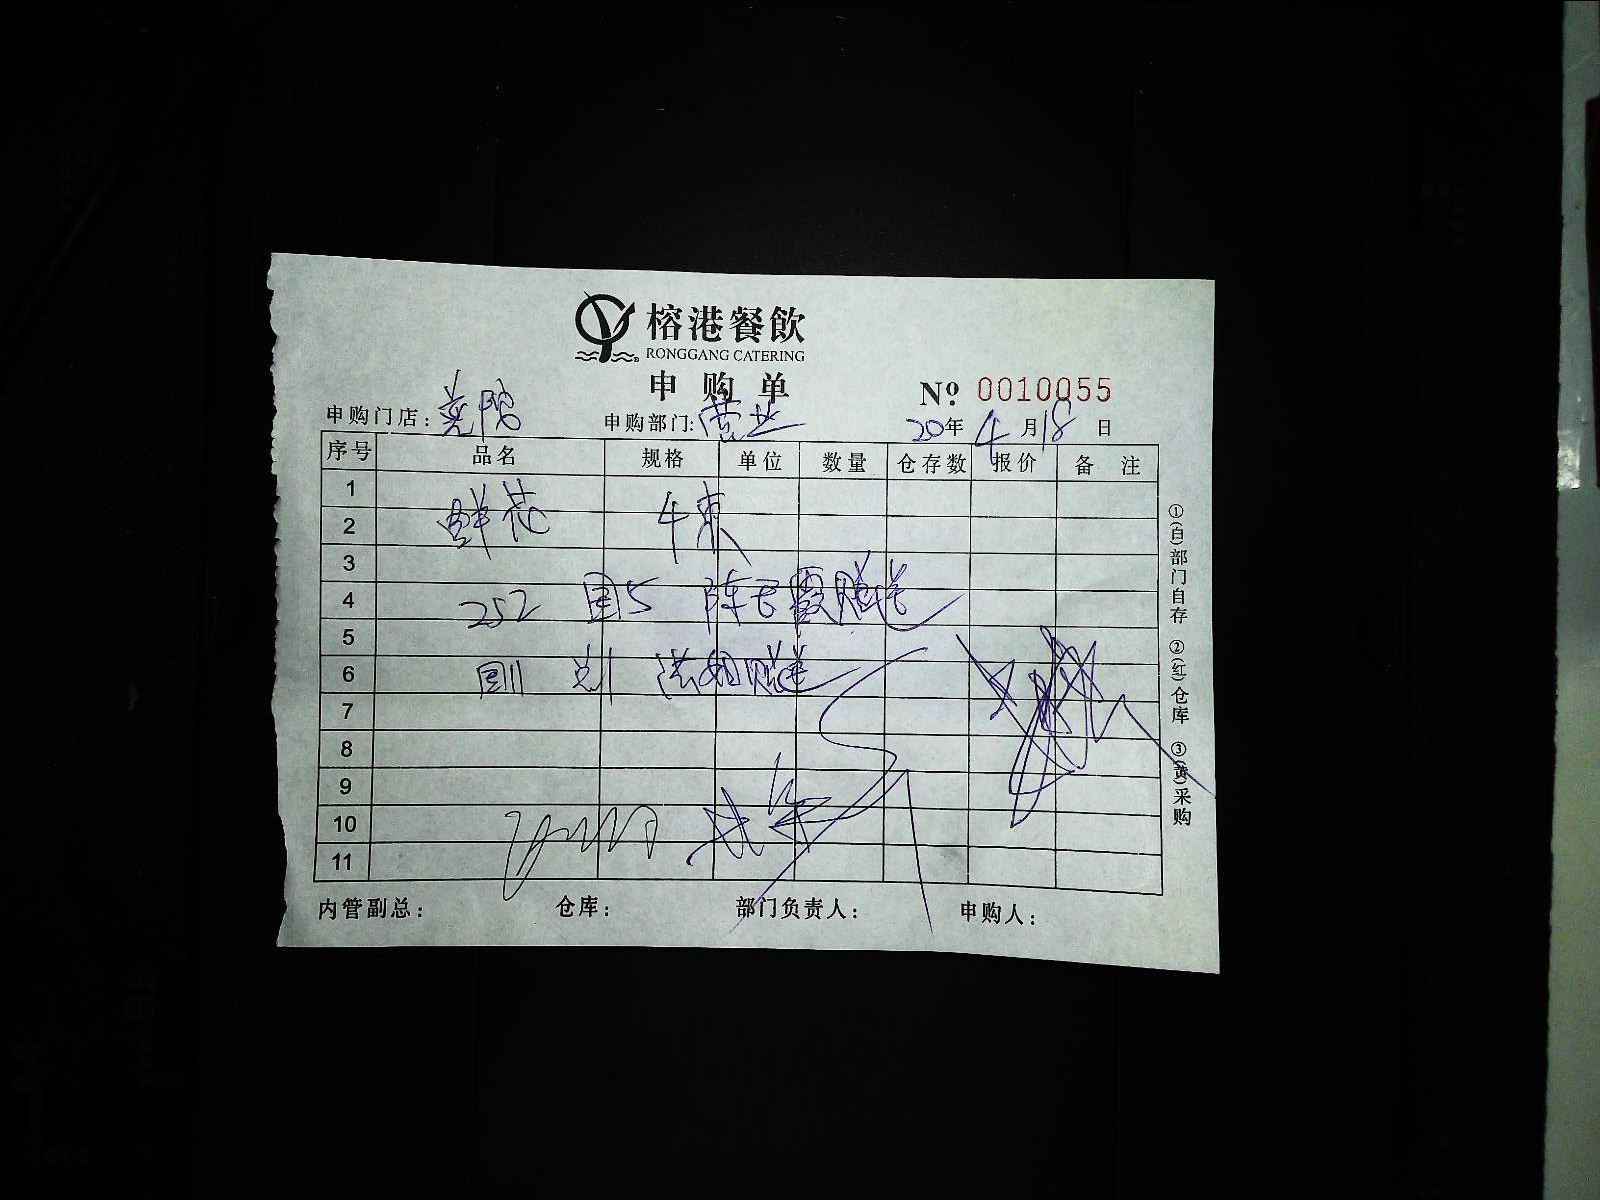 榕港餐飲
RONGGANG CATERING
申购单
№ 0010055
申购门店: 申购部门: 营业 20年4月18日
序号 品名 规格 单位 数量 仓存数 报价 备注
1
2 鲜花 4束
3
4 252 国5 陈云霞赠送
5
6 赠送
7
8
9
10
11
内管副总: 仓库: 部门负责人: 申购人:
①(白)部门自存 ②(红)仓库 ③(黄)采购